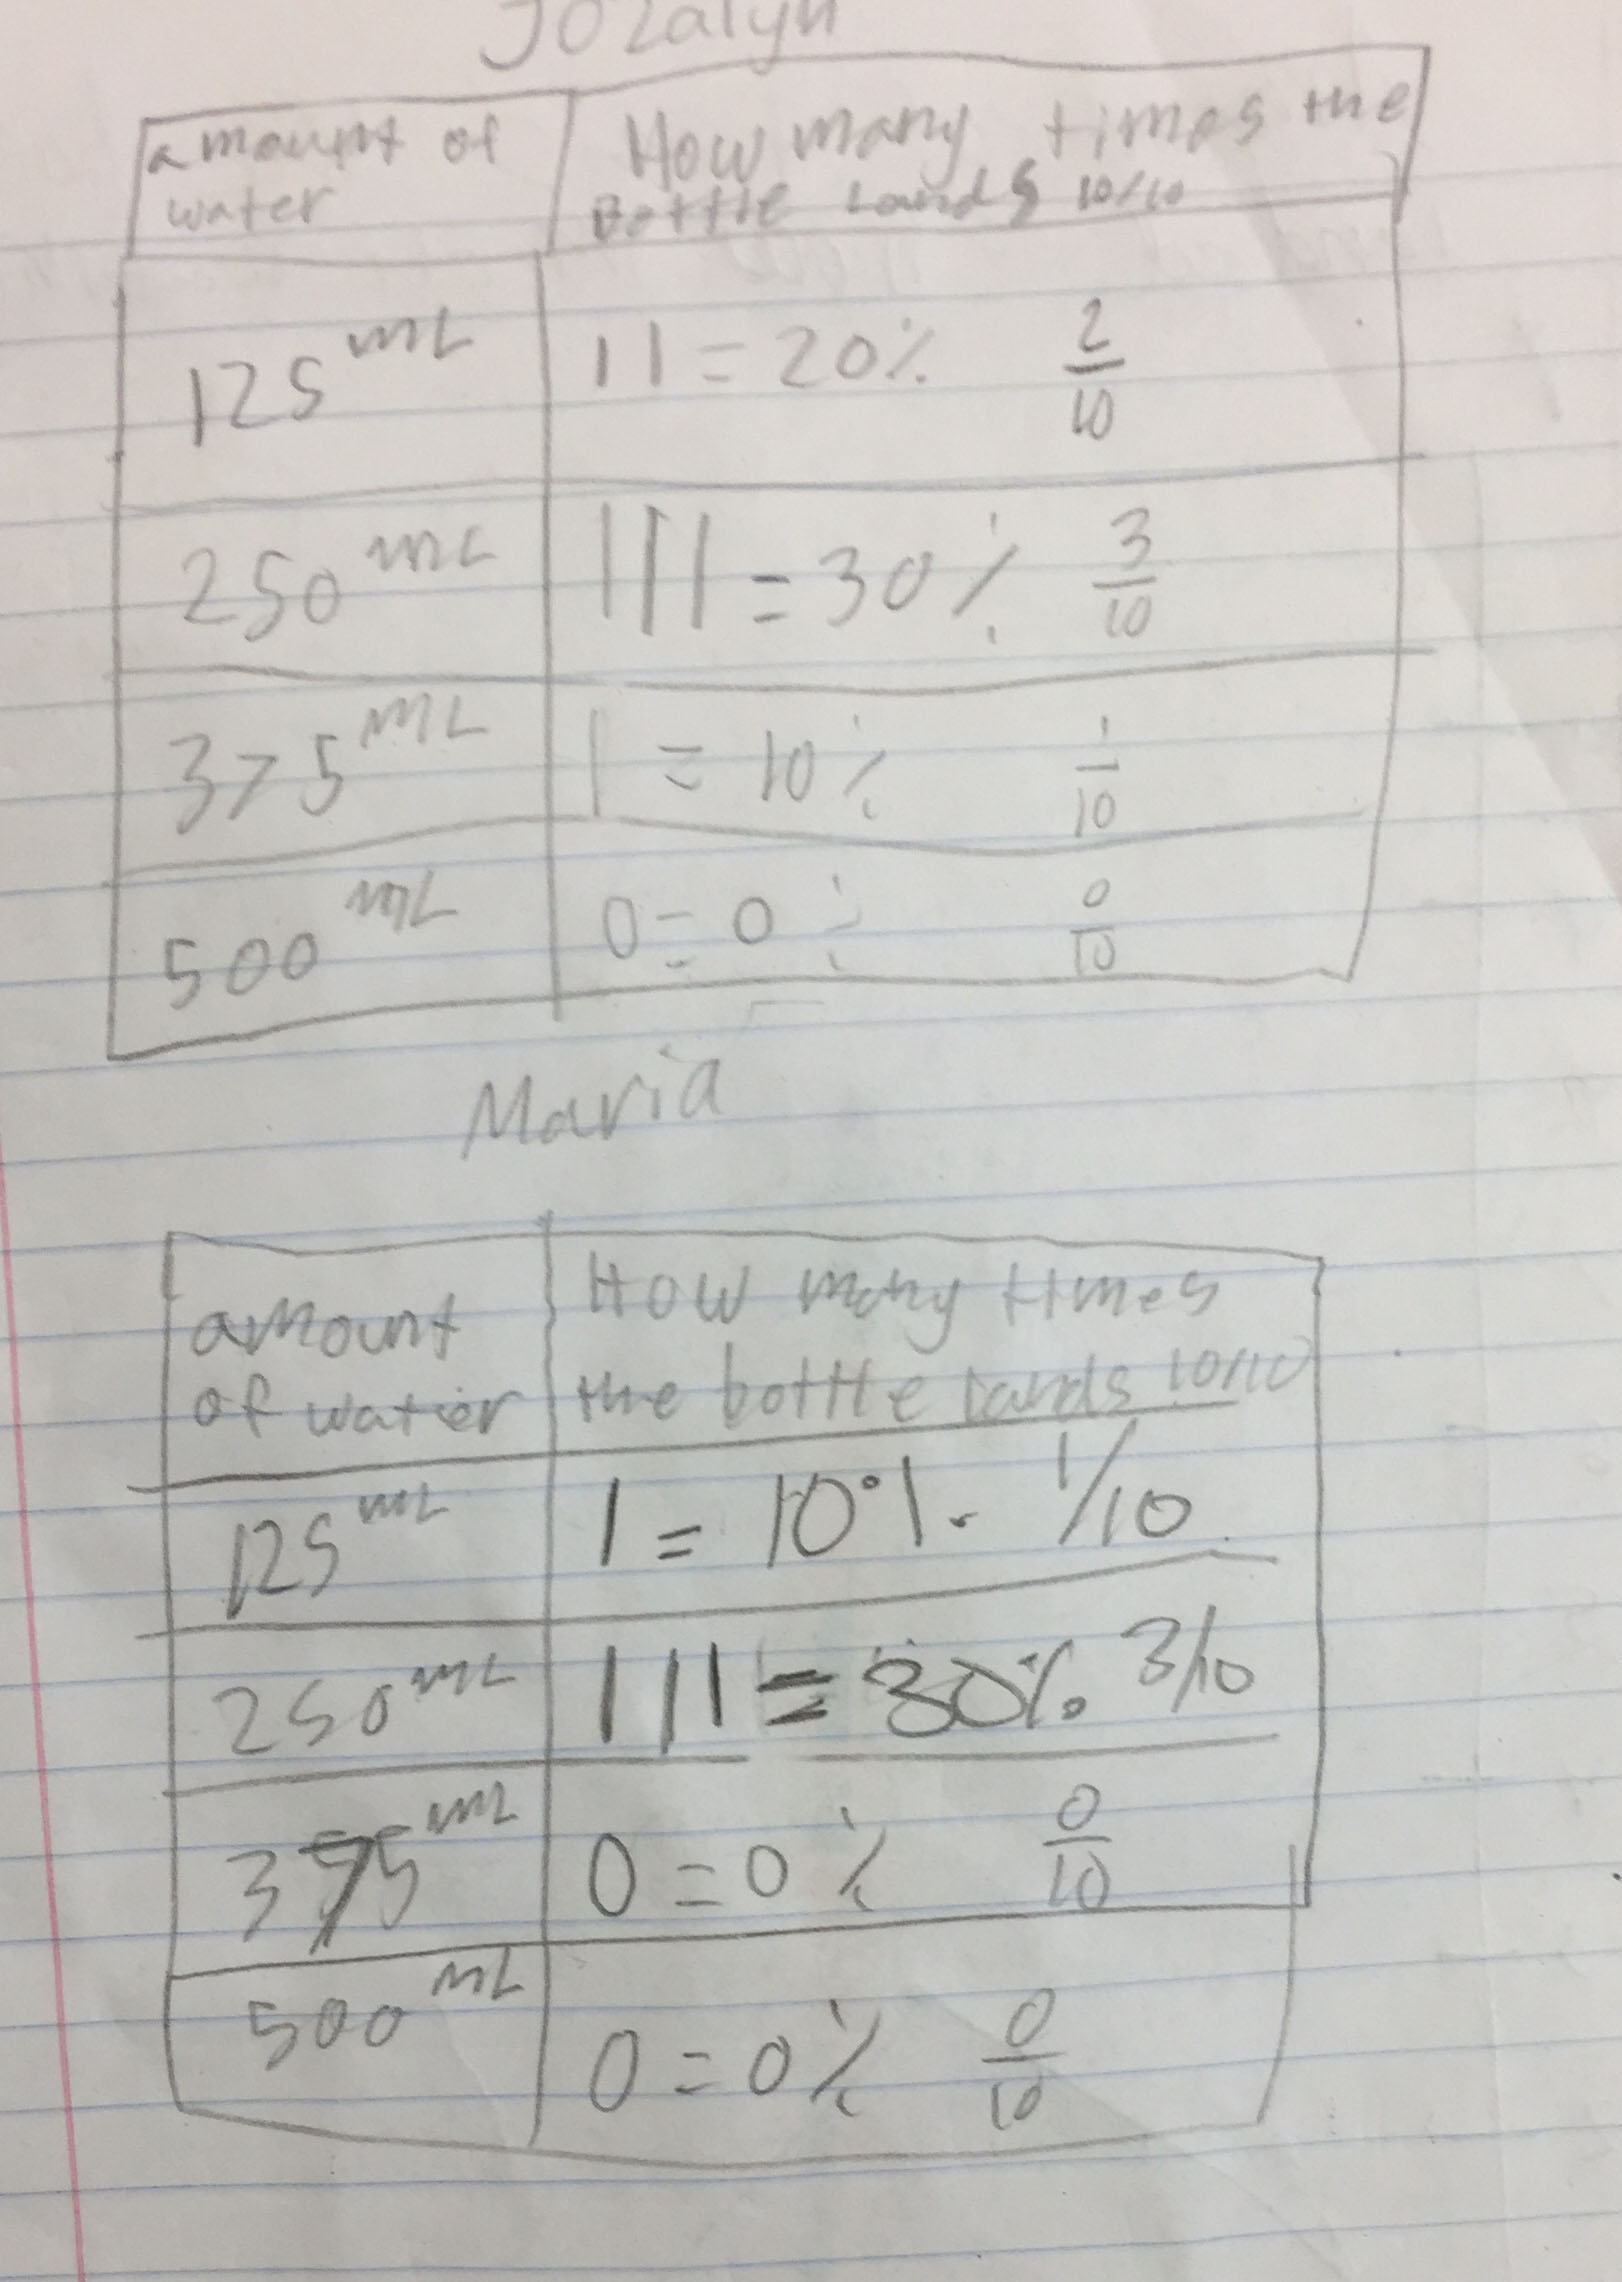 Jozalyn
amount of
water
How many times the
Bottle Lands 10/10
125 mL
11 = 20% 2/10
250 mL
111 = 30% 3/10
375 mL
1 = 10% 1/10
500 mL
0 = 0% 0/10
Maria
amount
of water
How many times
the bottle lands 10/10
125 mL
1 = 10% 1/10
250 mL
111 = 30% 3/10
375 mL
0 = 0% 0/10
500 mL
0 = 0% 0/10